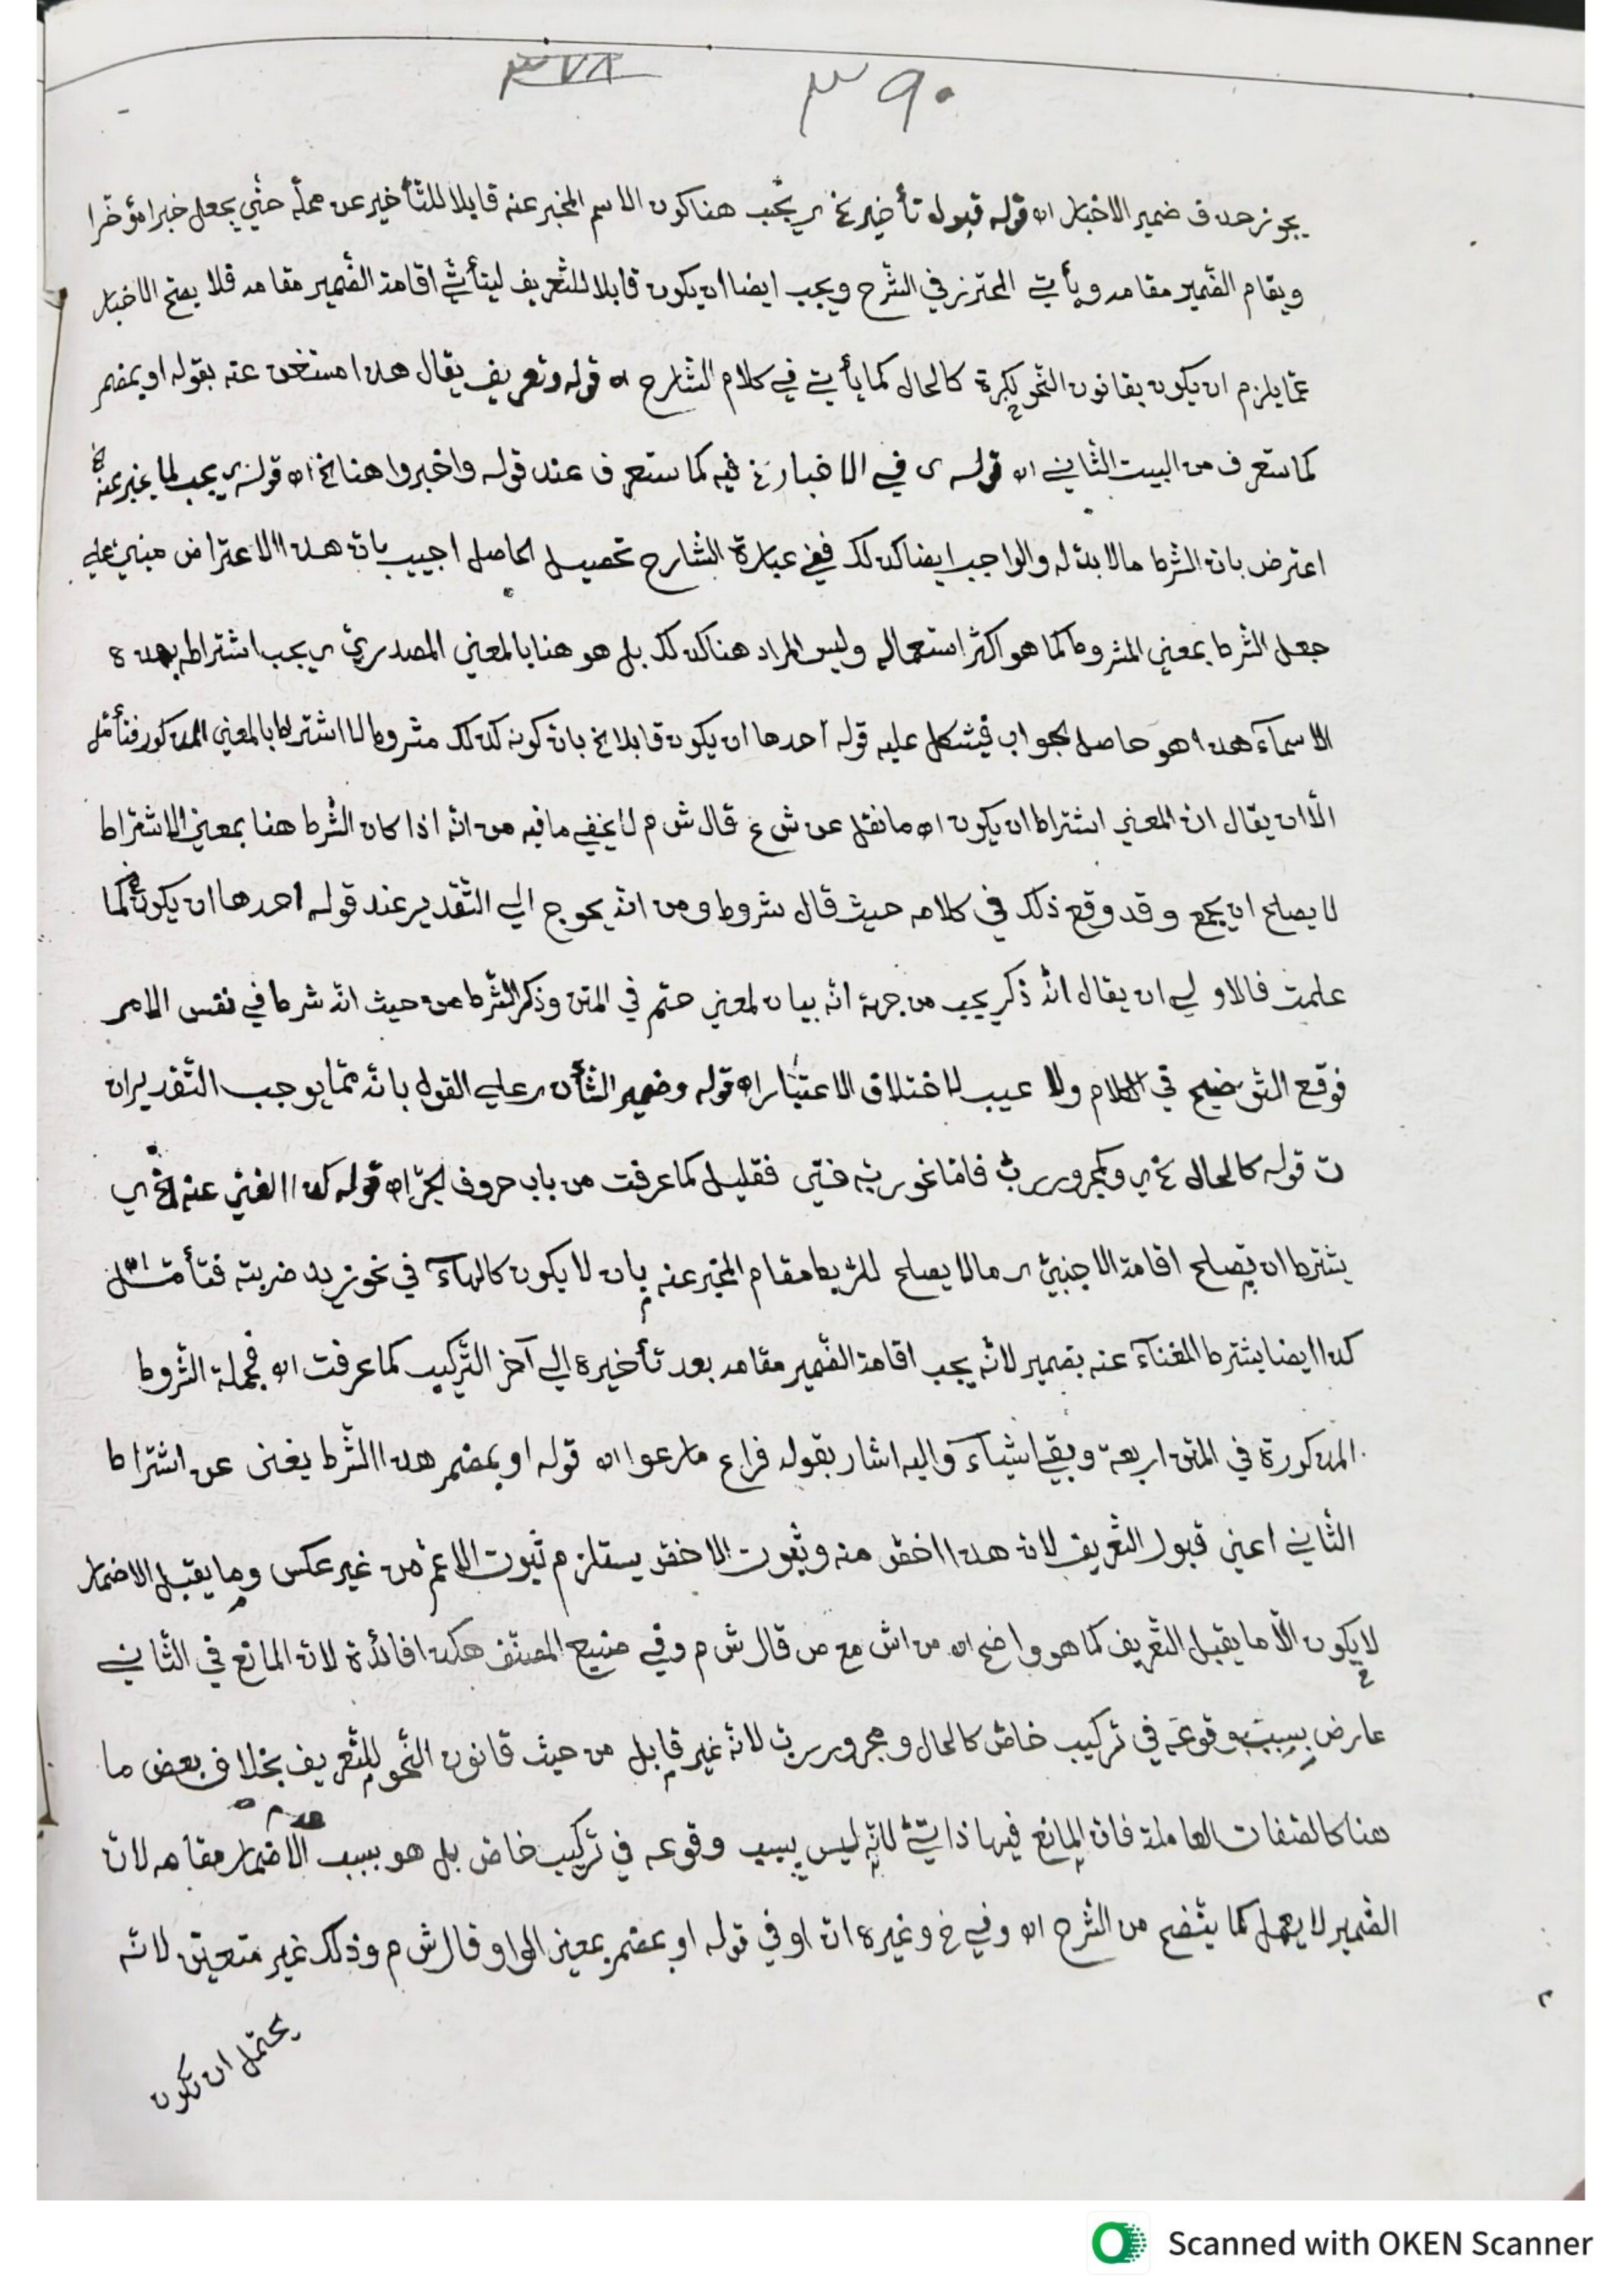 ٣٧٨ ٣٩٠
يجوز حذف ضمير الاخبار اه قوله قبول تأخير خ ي يجب هنا كون الاسم المخبر عنه قابلا للتأخير عن محلّه حتّي يجعل خبرا مؤخّرا
ويقام الضّمير مقامه ويأتي المحترز في الشّرح ويجب ايضا ان يكون قابلا للتّعريف ليتأتّي اقامة الضّمير مقامه فلا يصحّ الاخبار
عمّا يلزم ان يكون بقانون النّحو نكرة كالحال كما يأتي في كلام الشّارح اه قوله وتعريف يقال هذا مستغن عنه بقوله او بمضمر
كما ستعرف من البيت الثّاني اه قوله ى في الاخبار خ فيه كما ستعرف عند قوله واخبروا هنا الخ اه قوله ي يجب لما يخبر عنه
اعترض بان الشّرط ما لا بدّ له والواجب ايضا كذلك ففي عبارة الشّارح تحصيل الحاصل اجيب بان هذا الاعتراض مبني علي
جعل الشّرط بمعني المشروط كما هو اكثر استعماله وليس المراد هنا كذلك بل هو هنا بالمعني المصدريّ ي يجب اشتراط هذه
الاسماء هذا هو حاصل الجواب فيشكل عليه قوله احدها ان يكون قابلا خ بان كونه كذلك مشروط لا اشتراط بالمعني المذكور فتأمّل
الّا ان يقال ان المعني اشتراط ان يكون اه ما نقل عن ش ع قال ش م لا يخفي ما فيه من انّه اذا كان الشّرط هنا بمعني الاشتراط
لا يصلح ان يجمع وقد وقع ذلك في كلامه حيث قال شروط ومن انّه يحوج الي التّقدير عند قوله احدها ان يكون كما
علمت فالاولي ان يقال انّه ذكر يجب من جهة انّه بيان لمعني حتم في المتن وذكر الشّرط من حيث انّه شرط في نفس الامر
فوقع التّوضيح في الكلام ولا عيب لاختلاف الاعتبار اه قوله وضمير الشّأن ي علي القول بانّه ممّا يوجب التّقدير اه
ت قوله كالحال خ ي وكمجرور ربّ فامّا نحو ربّه فتي فقليل كما عرفت من باب حروف الجرّ اه قوله كذا الغني عنه الخ ي
يشترط ان يصلح اقامة الاجنبيّ ي ما لا يصلح للرّبط مقام المخبر عنه بان لا يكون كالهاء في نحو زيد ضربته فتأمّل
كذا ايضا يشترط الغناء عنه بضمير لانّه يجب اقامة الضّمير مقامه بعد تأخيره الي آخر التّركيب كما عرفت اه فجملة الشّروط
المذكورة في المتن اربعة وبقي اشياء واليه اشار بقوله فراع ما رعوا اه قوله او بمضمر هذا الشّرط يغني عن اشتراط
الثّاني اعني قبول التّعريف لان هذا اخصّ منه وثبوت الاخصّ يستلزم ثبوت الاعمّ من غير عكس وما يقبل الاضمار
لا يكون الّا ما يقبل التّعريف كما هو واضح اه من اش مع ص قال ش م وفي صنيع المصنّف هكذا فائدة لان المانع في الثّاني
عارض بسبب وقوعه في تركيب خاصّ كالحال ومجرور ربّ لانّه غير قابل من حيث قانون النّحو للتّعريف بخلاف بعض ما
هنا كالصّفات العاملة فان المانع فيها ذاتيّ لانّه ليس بسبب وقوعه في تركيب خاصّ بل هو بسبب الاضمار مقامه لان
الضّمير لا يعمل كما يتّضح من الشّرح اه وفي خ وغيره ان او في قوله او بمضمر بمعني الواو قال ش م وذلك غير متعيّن لانّه
يحتمل ان تكون
Scanned with OKEN Scanner